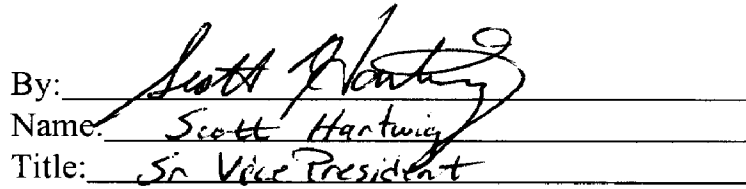 By: Scott Hartwig
Name: Scott Hartwig
Title: Sr Vice President